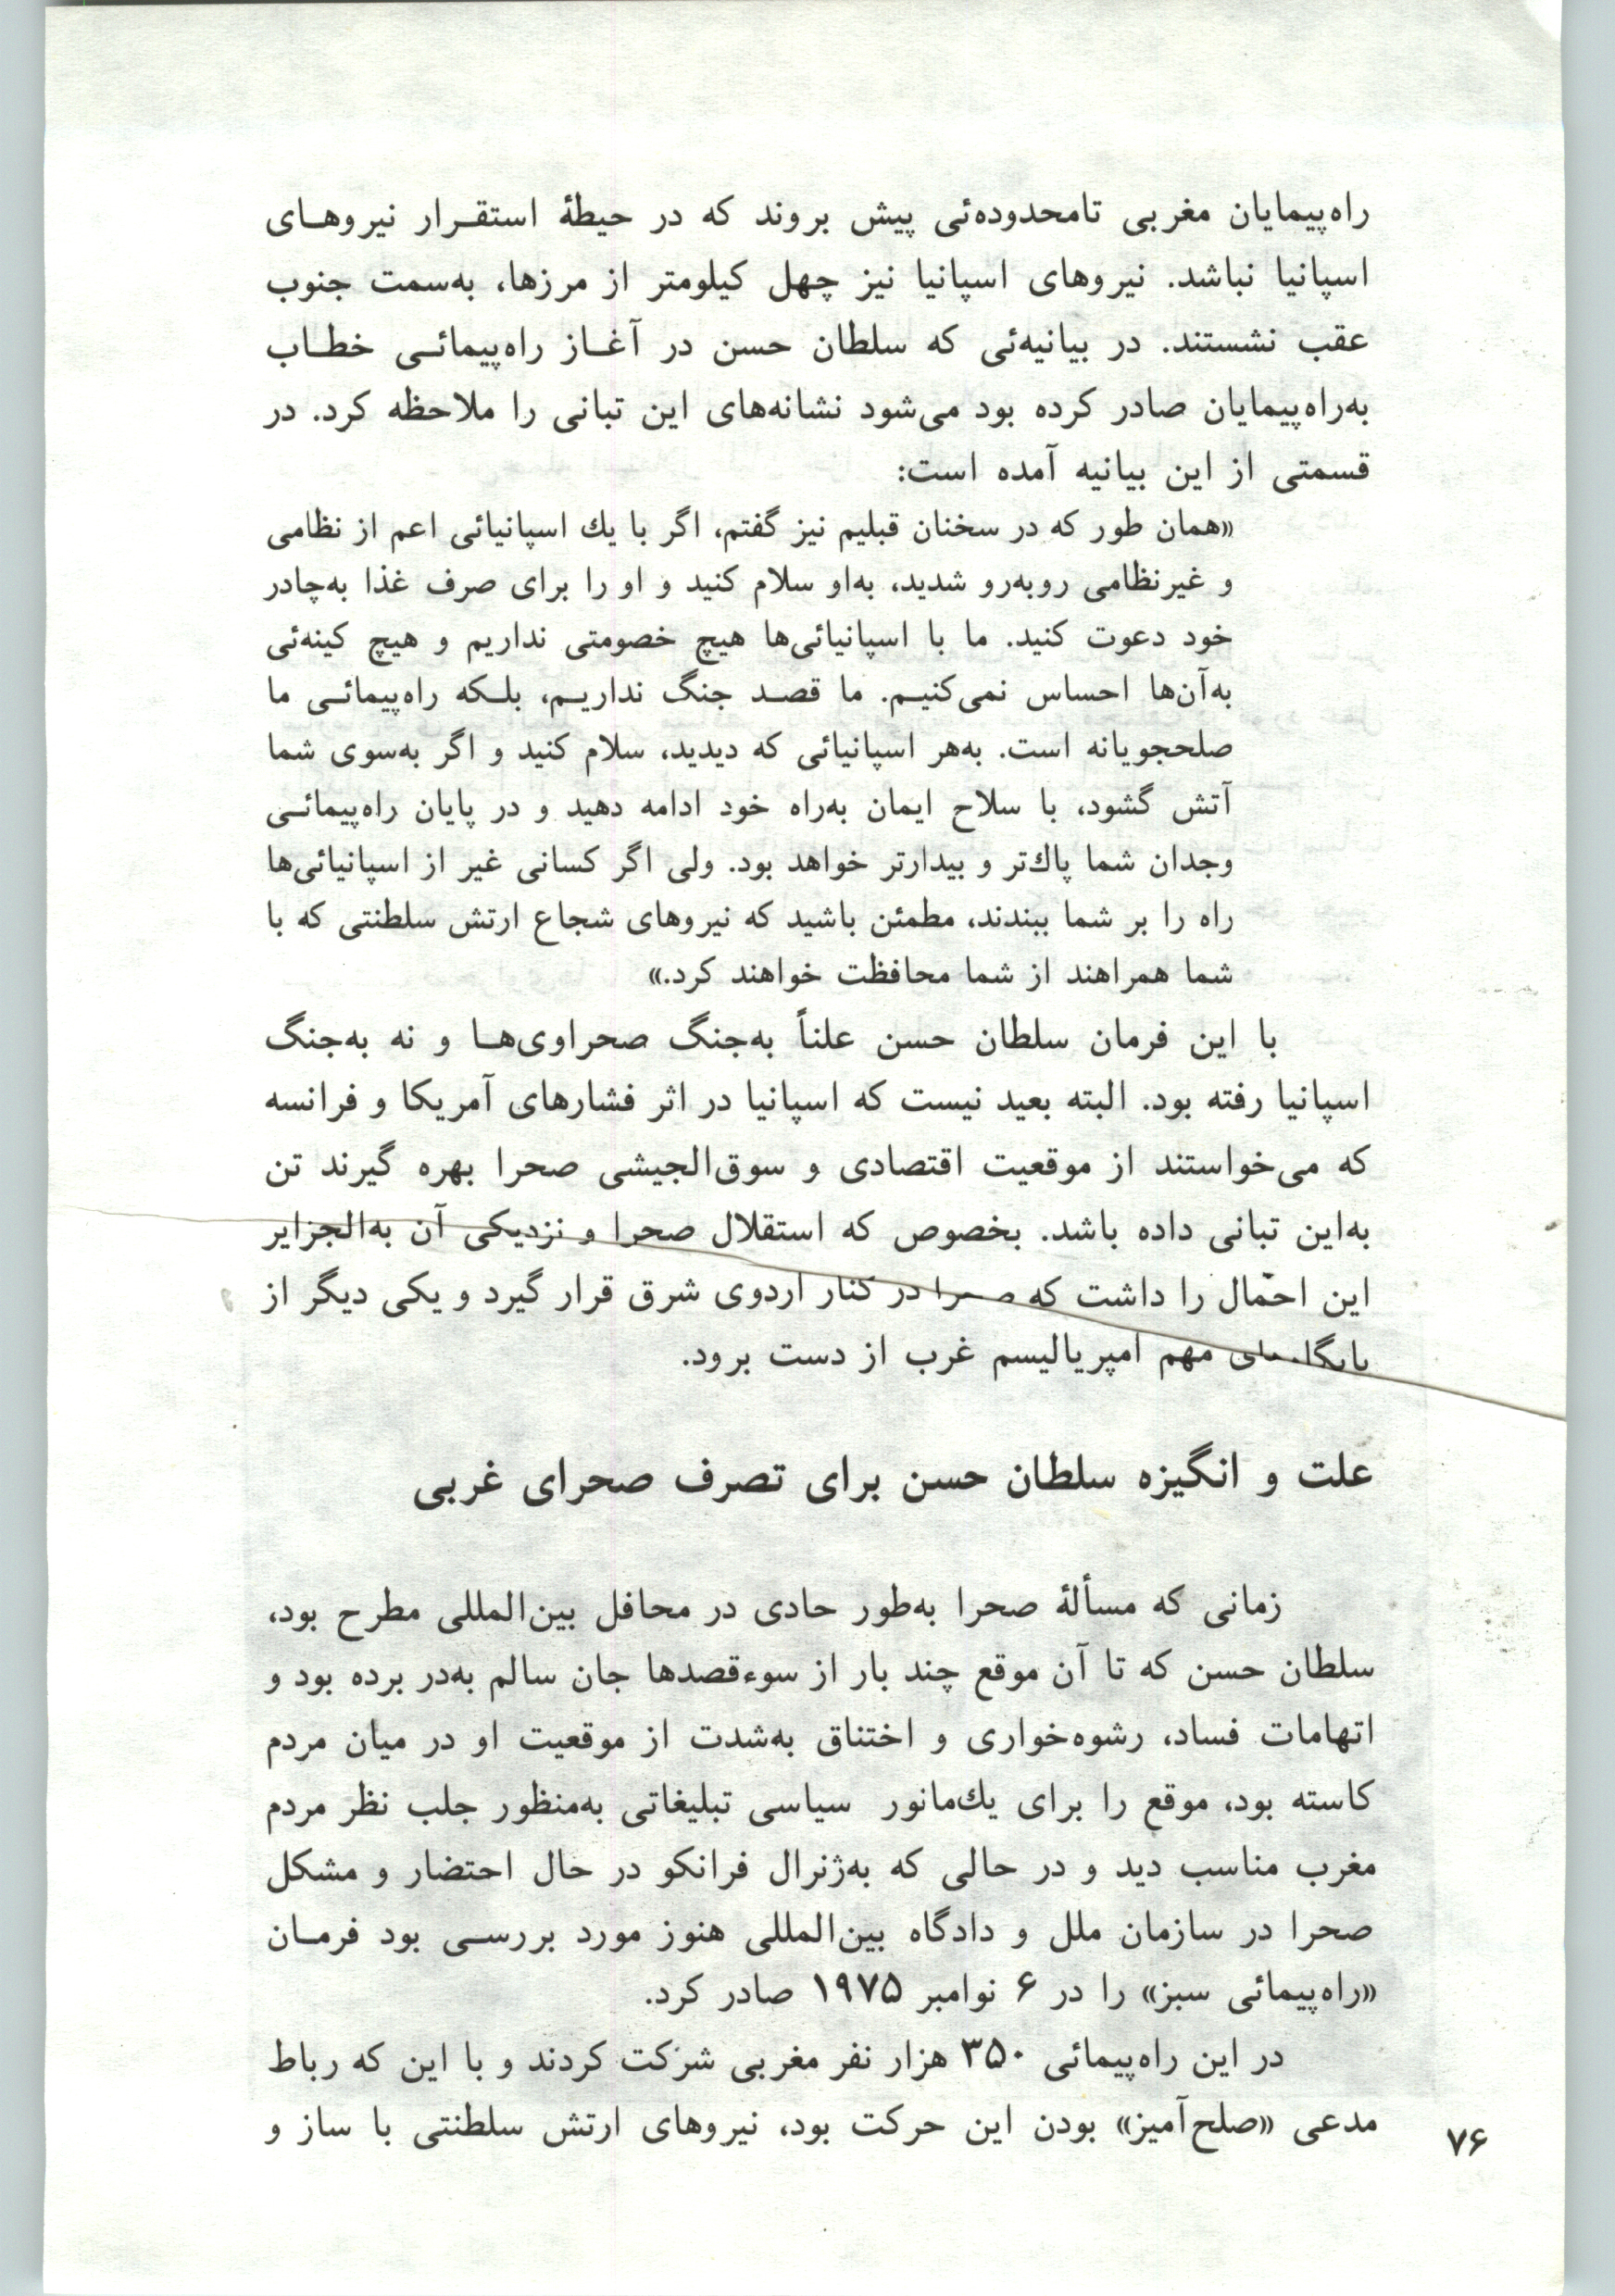 راه‌پیمایان مغربی تامحدوده‌ئی پیش بروند که در حیطهٔ استقـرار نیروهـای
اسپانیا نباشد. نیروهای اسپانیا نیز چهل کیلومتر از مرزها، به‌سمت جنوب
عقب نشستند. در بیانیه‌ئی که سلطان حسن در آغـاز راه‌پیمائـی خطـاب
به‌راه‌پیمایان صادر کرده بود می‌شود نشانه‌های این تبانی را ملاحظه کرد. در
قسمتی از این بیانیه آمده است:
«همان طور که در سخنان قبلیم نیز گفتم، اگر با یك اسپانیائی اعم از نظامی
و غیرنظامی روبه‌رو شدید، به‌او سلام کنید و او را برای صرف غذا به‌چادر
خود دعوت کنید. ما با اسپانیائی‌ها هیچ خصومتی نداریم و هیچ کینه‌ئی
به‌آن‌ها احساس نمی‌کنیـم. ما قصـد جنگ نداریـم، بلـکه راه‌پیمائـی ما
صلحجویانه است. به‌هر اسپانیائی که دیدید، سلام کنید و اگر به‌سوی شما
آتش گشود، با سلاح ایمان به‌راه خود ادامه دهید و در پایان راه‌پیمائـی
وجدان شما پاك‌تر و بیدارتر خواهد بود. ولی اگر کسانی غیر از اسپانیائی‌ها
راه را بر شما ببندند، مطمئن باشید که نیروهای شجاع ارتش سلطنتی که با
شما همراهند از شما محافظت خواهند کرد.»
با این فرمان سلطان حسن علناً به‌جنگ صحراوی‌هـا و نه به‌جنگ
اسپانیا رفته بود. البته بعید نیست که اسپانیا در اثر فشارهای آمریکا و فرانسه
که می‌خواستند از موقعیت اقتصادی و سوق‌الجیشی صحرا بهره گیرند تن
به‌این تبانی داده باشد. بخصوص که استقلال صحرا و نزدیکی آن به‌الجزایر
این احتمال را داشت که صحرا در کنار اردوی شرق قرار گیرد و یکی دیگر از
پایگاه‌های مهم امپریالیسم غرب از دست برود.
علت و انگیزه سلطان حسن برای تصرف صحرای غربی
زمانی که مسألهٔ صحرا به‌طور حادی در محافل بین‌المللی مطرح بود،
سلطان حسن که تا آن موقع چند بار از سوءقصدها جان سالم به‌در برده بود و
اتهامات فساد، رشوه‌خواری و اختناق به‌شدت از موقعیت او در میان مردم
کاسته بود، موقع را برای یك‌مانور سیاسی تبلیغاتی به‌منظور جلب نظر مردم
مغرب مناسب دید و در حالی که به‌ژنرال فرانکو در حال احتضار و مشکل
صحرا در سازمان ملل و دادگاه بین‌المللی هنوز مورد بررسـی بود فرمـان
«راه‌پیمائی سبز» را در ۶ نوامبر ۱۹۷۵ صادر کرد.
در این راه‌پیمائی ۳۵۰ هزار نفر مغربی شرکت کردند و با این که رباط
مدعی «صلح‌آمیز» بودن این حرکت بود، نیروهای ارتش سلطنتی با ساز و
۷۶